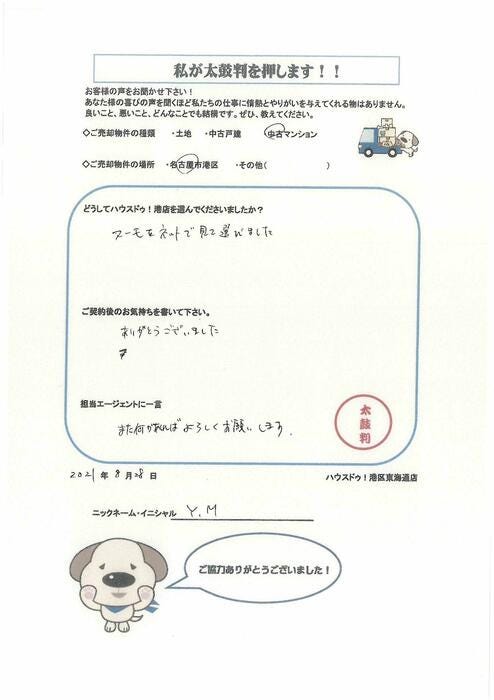 私が太鼓判を押します！！
お客様の声をお聞かせ下さい！
あなた様の喜びの声を聞くほど私たちの仕事に情熱とやりがいを与えてくれる物はありません。
良いこと、悪いこと、どんなことでも結構です。ぜひ、教えてください。
◇ご売却物件の種類 ・土地 ・中古戸建 ・中古マンション
◇ご売却物件の場所 ・名古屋市港区 ・その他( )
どうしてハウスドゥ！港店を選んでくださいましたか？
スーモをネットで見て選びました
ご契約後のお気持ちを書いて下さい。
ありがとうございました
担当エージェントに一言
また何かあればよろしくお願いします。
太鼓判
2021年 8月 28日
ハウスドゥ！港区東海道店
ニックネーム・イニシャル Y.M
ご協力ありがとうございました！